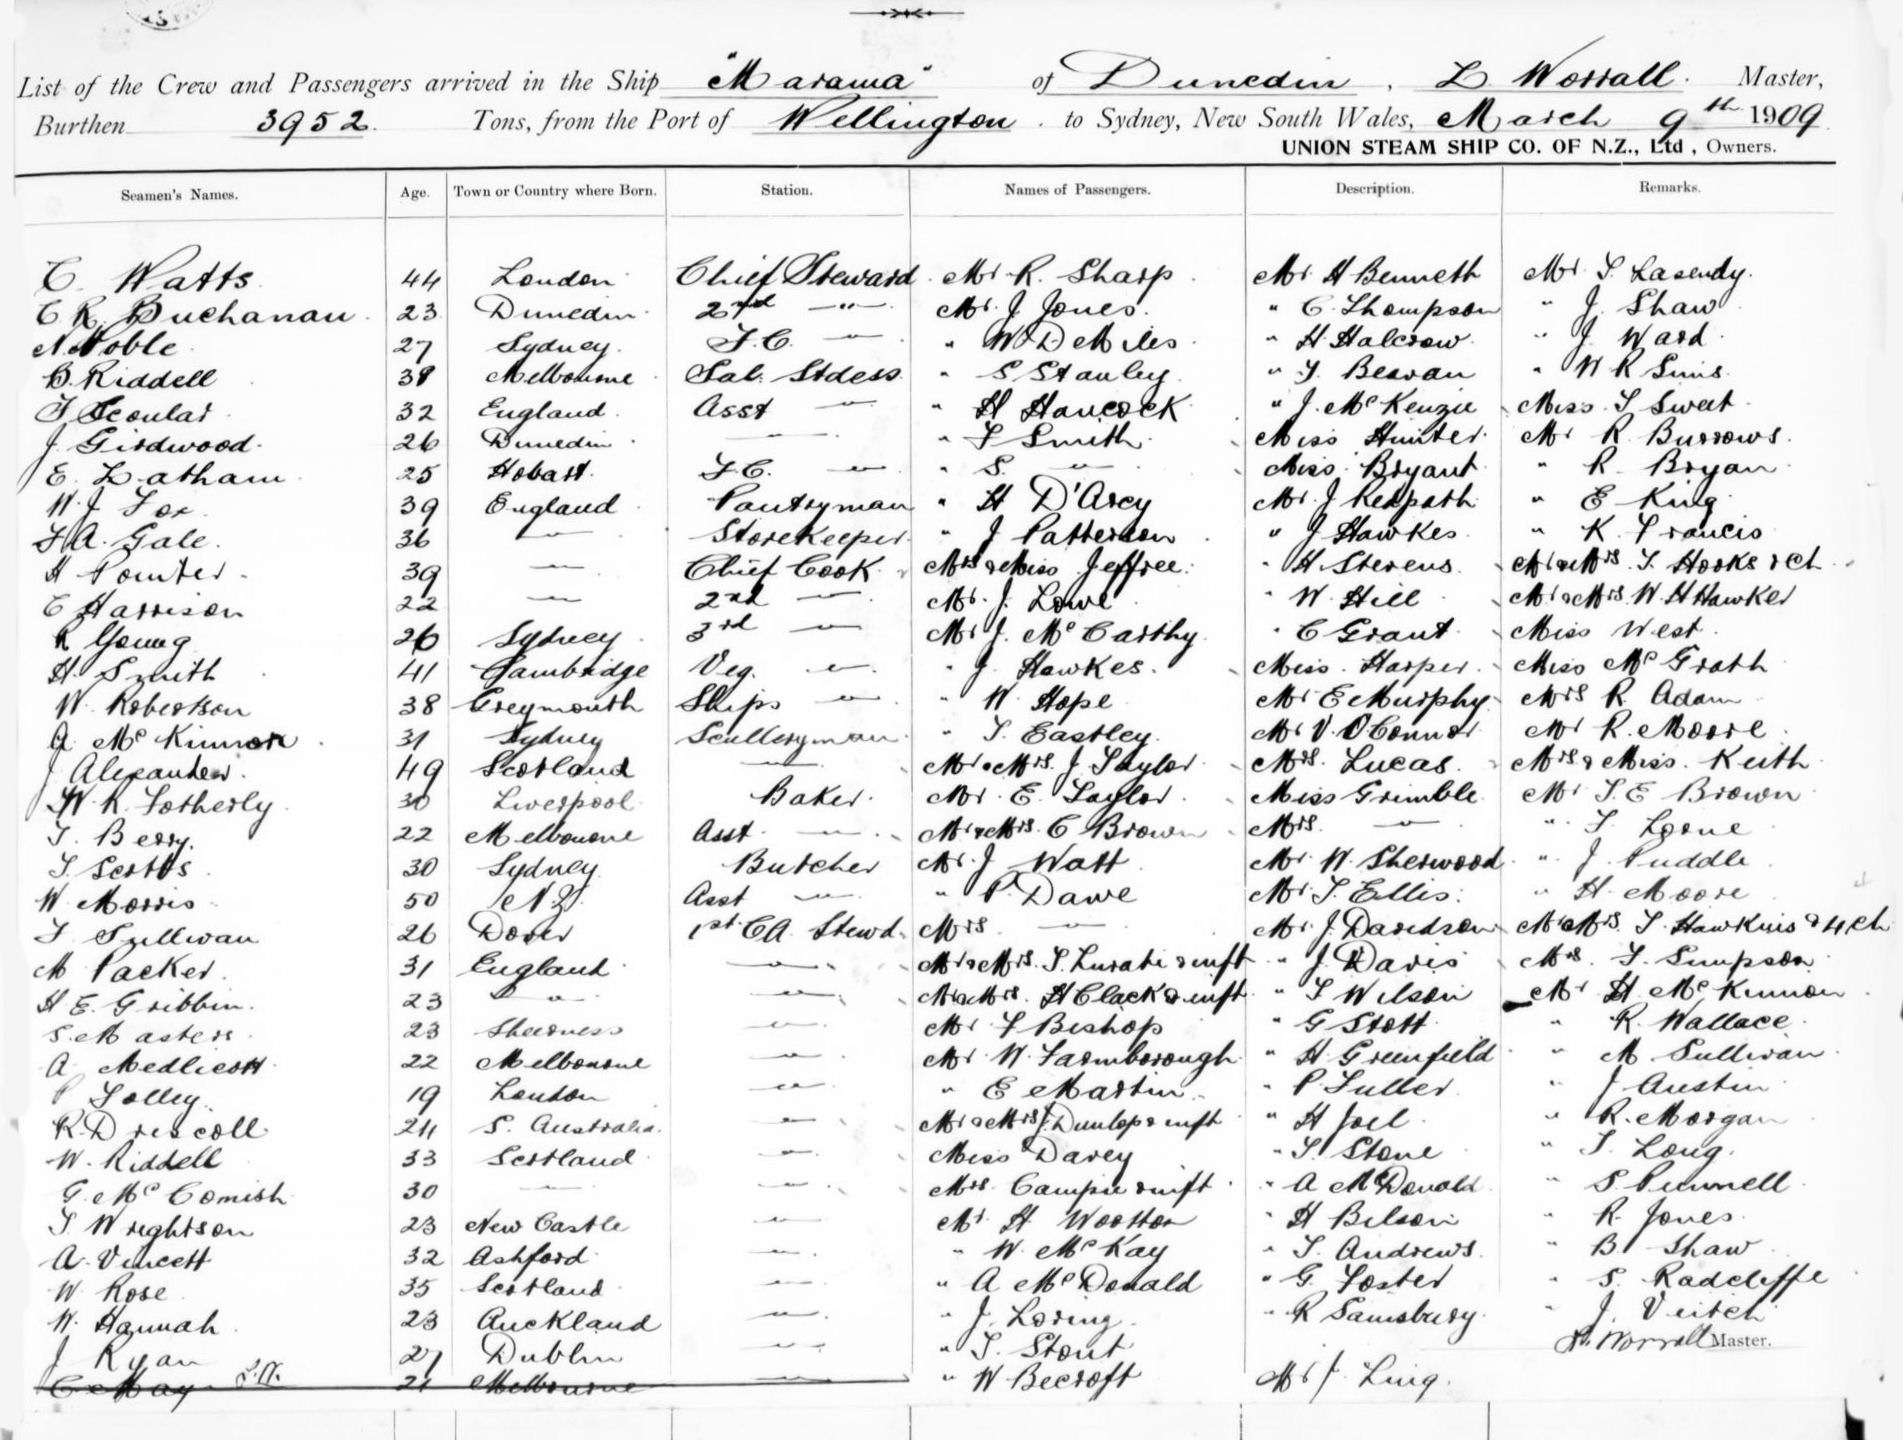 List of the Crew and Passengers arrived in the Ship "Marama" of Dunedin, L Worrall. Master,
Burthen 3952. Tons, from the Port of Wellington. to Sydney, New South Wales, March 9th 1909
UNION STEAM SHIP CO. OF N.Z., Ltd, Owners.
Seamen's Names. Age. Town or Country where Born. Station. Names of Passengers. Description. Remarks.
C. Watts 44 London Chief Steward Mr R. Sharp Mr H Bennett Mr T.
C R. Buchanan 23 Dunedin 2nd " Mr. J Jones. " C. Thompson " J. Shaw
N Noble 27 Sydney. F.C. " " W D Miles " H Halcrow " J Ward
B. Riddell 38 Melbourne Sal. Stdess " S Stanley " T. Beavan " W R Sims
F Scoular 32 England. Asst " " H Hancock " J. McKenzie Miss T Sweet
J Girdwood. 26 Dunedin " " F Smith. Miss Hunter. Mr R Burrows.
E. Latham 25 Hobart. F.C. " " S. " Miss Bryant " R Bryan
W. J Fox 39 England Pantryman " H D'Arcy Mr. J Redpath " E King
F A. Gale. 36 " Storekeeper " J Patterson " J Hawkes " K Francis
H Pointer 39 " Chief Cook Mrs & Miss Jeffree. " H Stevens Mr & Mrs. T. Hooks & ch.
C Harrison 22 " 2nd " Mr. J. Lowe " W. Hill Mr & Mrs. W. H Hawker
R Young 26 Sydney 3rd " Mr J. McCarthy " C Grant Miss West
H Smith 41 Cambridge Veg. " " J. Hawkes. Miss Harper Miss McGrath
W. Robertson 38 Greymouth Ships " " W. Hope Mr E Murphy Mrs R. Adam
A McKinnon 31 Sydney Sculleryman " T. Eastley. Mr V. O'Connor Mr R. Moore
J Alexander. 49 Scotland " Mr & Mrs. J Taylor Mrs. Lucas. Mrs & Miss. Keith
W. R. Fotherly 30 Liverpool Baker. Mr. E. Taylor Miss Grimble Mr T. E Brown
T. Berry. 22 Melbourne Asst " Mr & Mrs. C Brown Mrs. " " T. Lorne
T. Scotts 30 Sydney Butcher Mr. J Watt Mr W. Sherwood " J. Puddle
W Morris 50 N Z. Asst " " P. Dawe Mr T. Ellis. " H. Moore
T Sullivan 26 Dover 1st CA. Stewd. Mrs " Mr. J. Davidson Mr & Mrs. T. Hawkins & 4 ch
M Packer. 31 England " Mr & Mrs. T. Lurati & inft " J Davis Mrs. T. Simpson
H E. Gribbin. 23 " " Mr & Mrs. H Clack & inft " T Wilson Mr H. McKinnon
S. Masters 23 Sheerness " Mr. F Bishop " G Stott " R. Wallace
A Medlicott 22 Melbourne " Mr. W. Farmborough " H Greenfield " M Sullivan
P Folley 19 London " " E Martin " P Fuller " J Austin
R. Driscoll 24 S. Australia " Mr & Mrs J Dunlop & inft " H Joel " R. Morgan
W. Riddell 33 Scotland " Miss Davey " T. Stone " T. Long.
G. McComish 30 " " Mrs. Campie & inft " A McDonald " S Punnell
T Wrightson 23 New Castle " Mr. H Wootton " H Bilson " R. Jones
A. Vincett 32 Ashford " " W. McKay " T. Andrews " B Shaw
W Rose 35 Scotland " " A McDonald " G Foster " S. Radcliffe
W. Hannah 23 Auckland " " J. Loring. " R Sainsbury. " J. Veitch
J Ryan 27 Dublin " " T. Stout L. Worrall Master.
C May L.W. 21 Melbourne " " W Becroft Mr J. Ling.